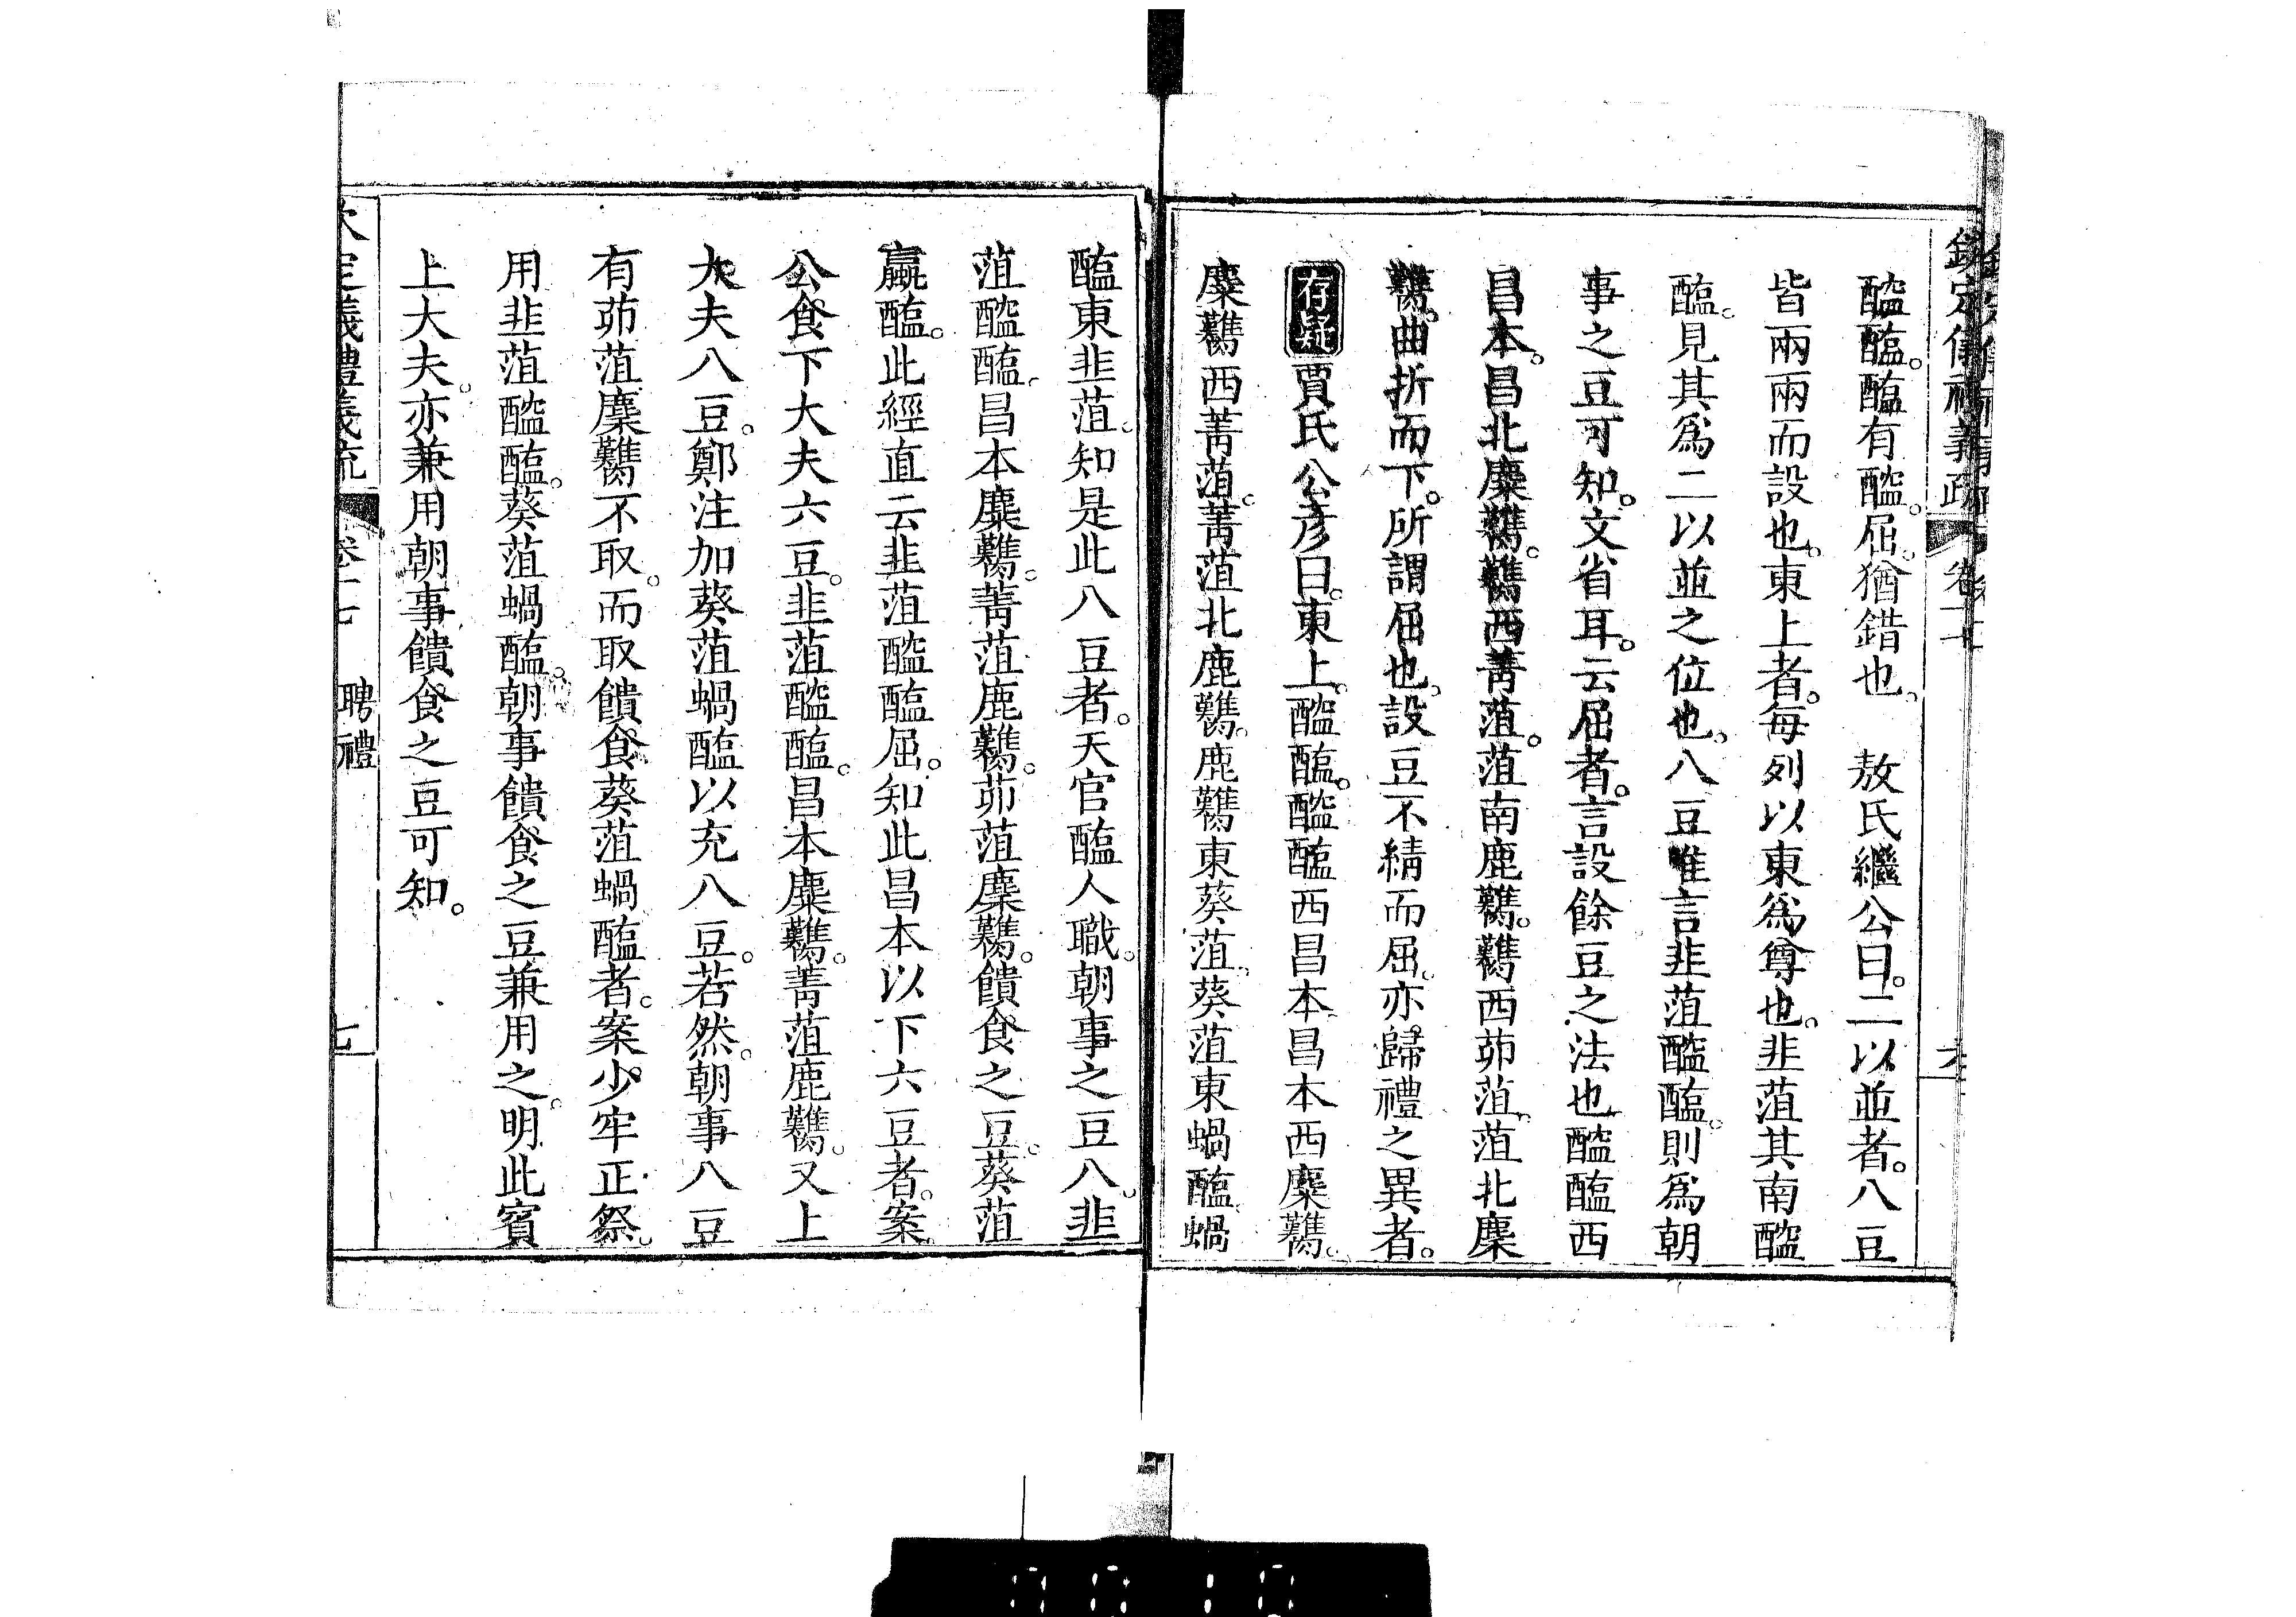 欽定儀禮義疏 卷十七
醓醢。醢有醓。屈。猶錯也。 敖氏繼公曰。二以並者。八豆
皆兩兩而設也。東上者。每列以東爲尊也。韭菹其南醓
醢。見其爲二以並之位也。八豆惟言韭菹醓醢。則爲朝
事之豆可知。文省耳。云屈者。言設餘豆之法也醓醢西
昌本。昌北麋臡。臡西菁菹。菹南鹿臡。臡西茆菹。菹北麋
臡。曲折而下。所謂屈也。設豆不綪而屈。亦歸禮之異者。
存疑 賈氏公彦曰。東上。醓醢。醓醢西昌本昌本西麋臡。
麋臡西菁菹。菁菹北鹿臡。鹿臡東葵菹。葵菹東蝸醢蝸
醢東韭菹。知是此八豆者。天官醢人職。朝事之豆八。韭
菹醓醢。昌本麋臡。菁菹鹿臡。茆菹麋臡。饋食之豆。葵菹
蠃醢。此經直云韭菹醓醢屈。知此昌本以下六豆者。案。
公食下大夫六豆。韭菹醓醢。昌本麋臡。菁菹鹿臡。又上
大夫八豆。鄭注加葵菹蝸醢以充八豆。若然。朝事八豆
有茆菹麋臡不取。而取饋食葵菹蝸醢者。案少牢正祭。
用韭菹醓醢。葵菹蝸醢。朝事饋食之豆兼用之。明此賓
上大夫。亦兼用朝事饋食之豆可知。
欽定儀禮義疏 卷十七 聘禮 七